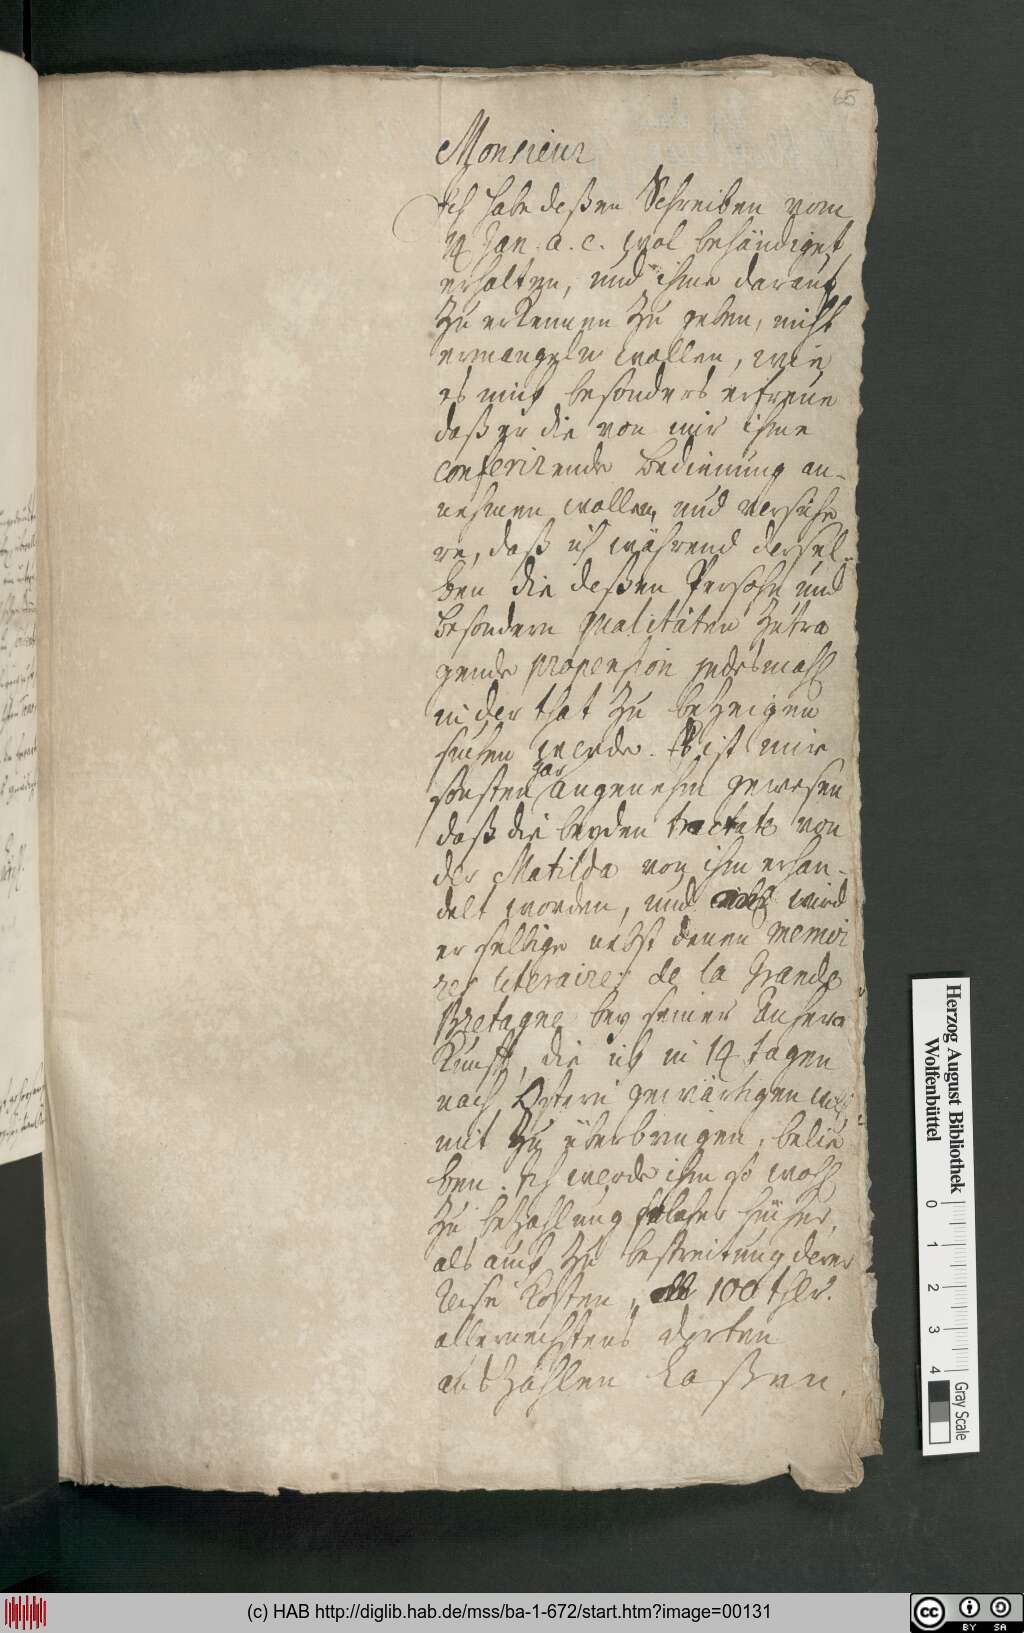 65
Monsieur
Ich habe deßen Schreiben vom
14 Jan. a. c. wol behändiget
erhalten, und ihme darauf
zu erkennen zu geben, nicht
ermangeln wollen, wie
es mich besonders erfreue
daß er die von mir ihme
conferirende Bedienung an-
nehmen wollen, und versiche
re, daß ich während dersel-
ben die deßen Persohn und
besondern qualitäten zutra
gende propension jedesmahl
in der that zu bezeigen
suchen werde. Es ist mir
sonsten gar angenehm gewesen
daß die beyden tractate von
der Matilda von ihm erhan-
delt worden, und wird
er selbige nebst denen memoi
res literaires de la Grande
Bretagne bey seiner Anhero
Kunft, die ich in 14 tagen
nach Ostern gewärtigen will,
mit zu überbringen, belie
ben. Ich werde ihm so wohl
zu bezahlung solcher bücher,
als auch zu bestreitung derer
Reise Kosten, 100 thlr.
allernechstens dorten
auszahlen Laßen.
Herzog August Bibliothek
Wolfenbüttel
0 1 2 3 4
Gray Scale
(c) HAB http://diglib.hab.de/mss/ba-1-672/start.htm?image=00131
cc BY SA